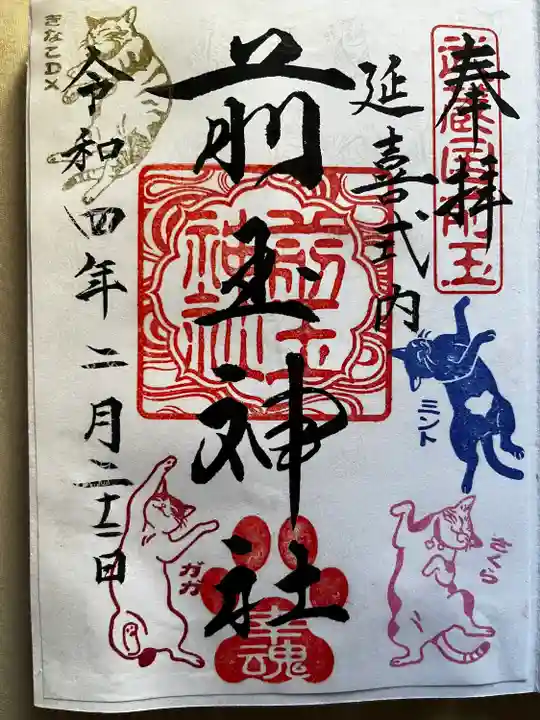 奉拝
武蔵国前玉
延喜式内
前玉神社
前玉神社
幸魂
令和四年二月二十二日
きなこDX
ミント
さくら
ガガ